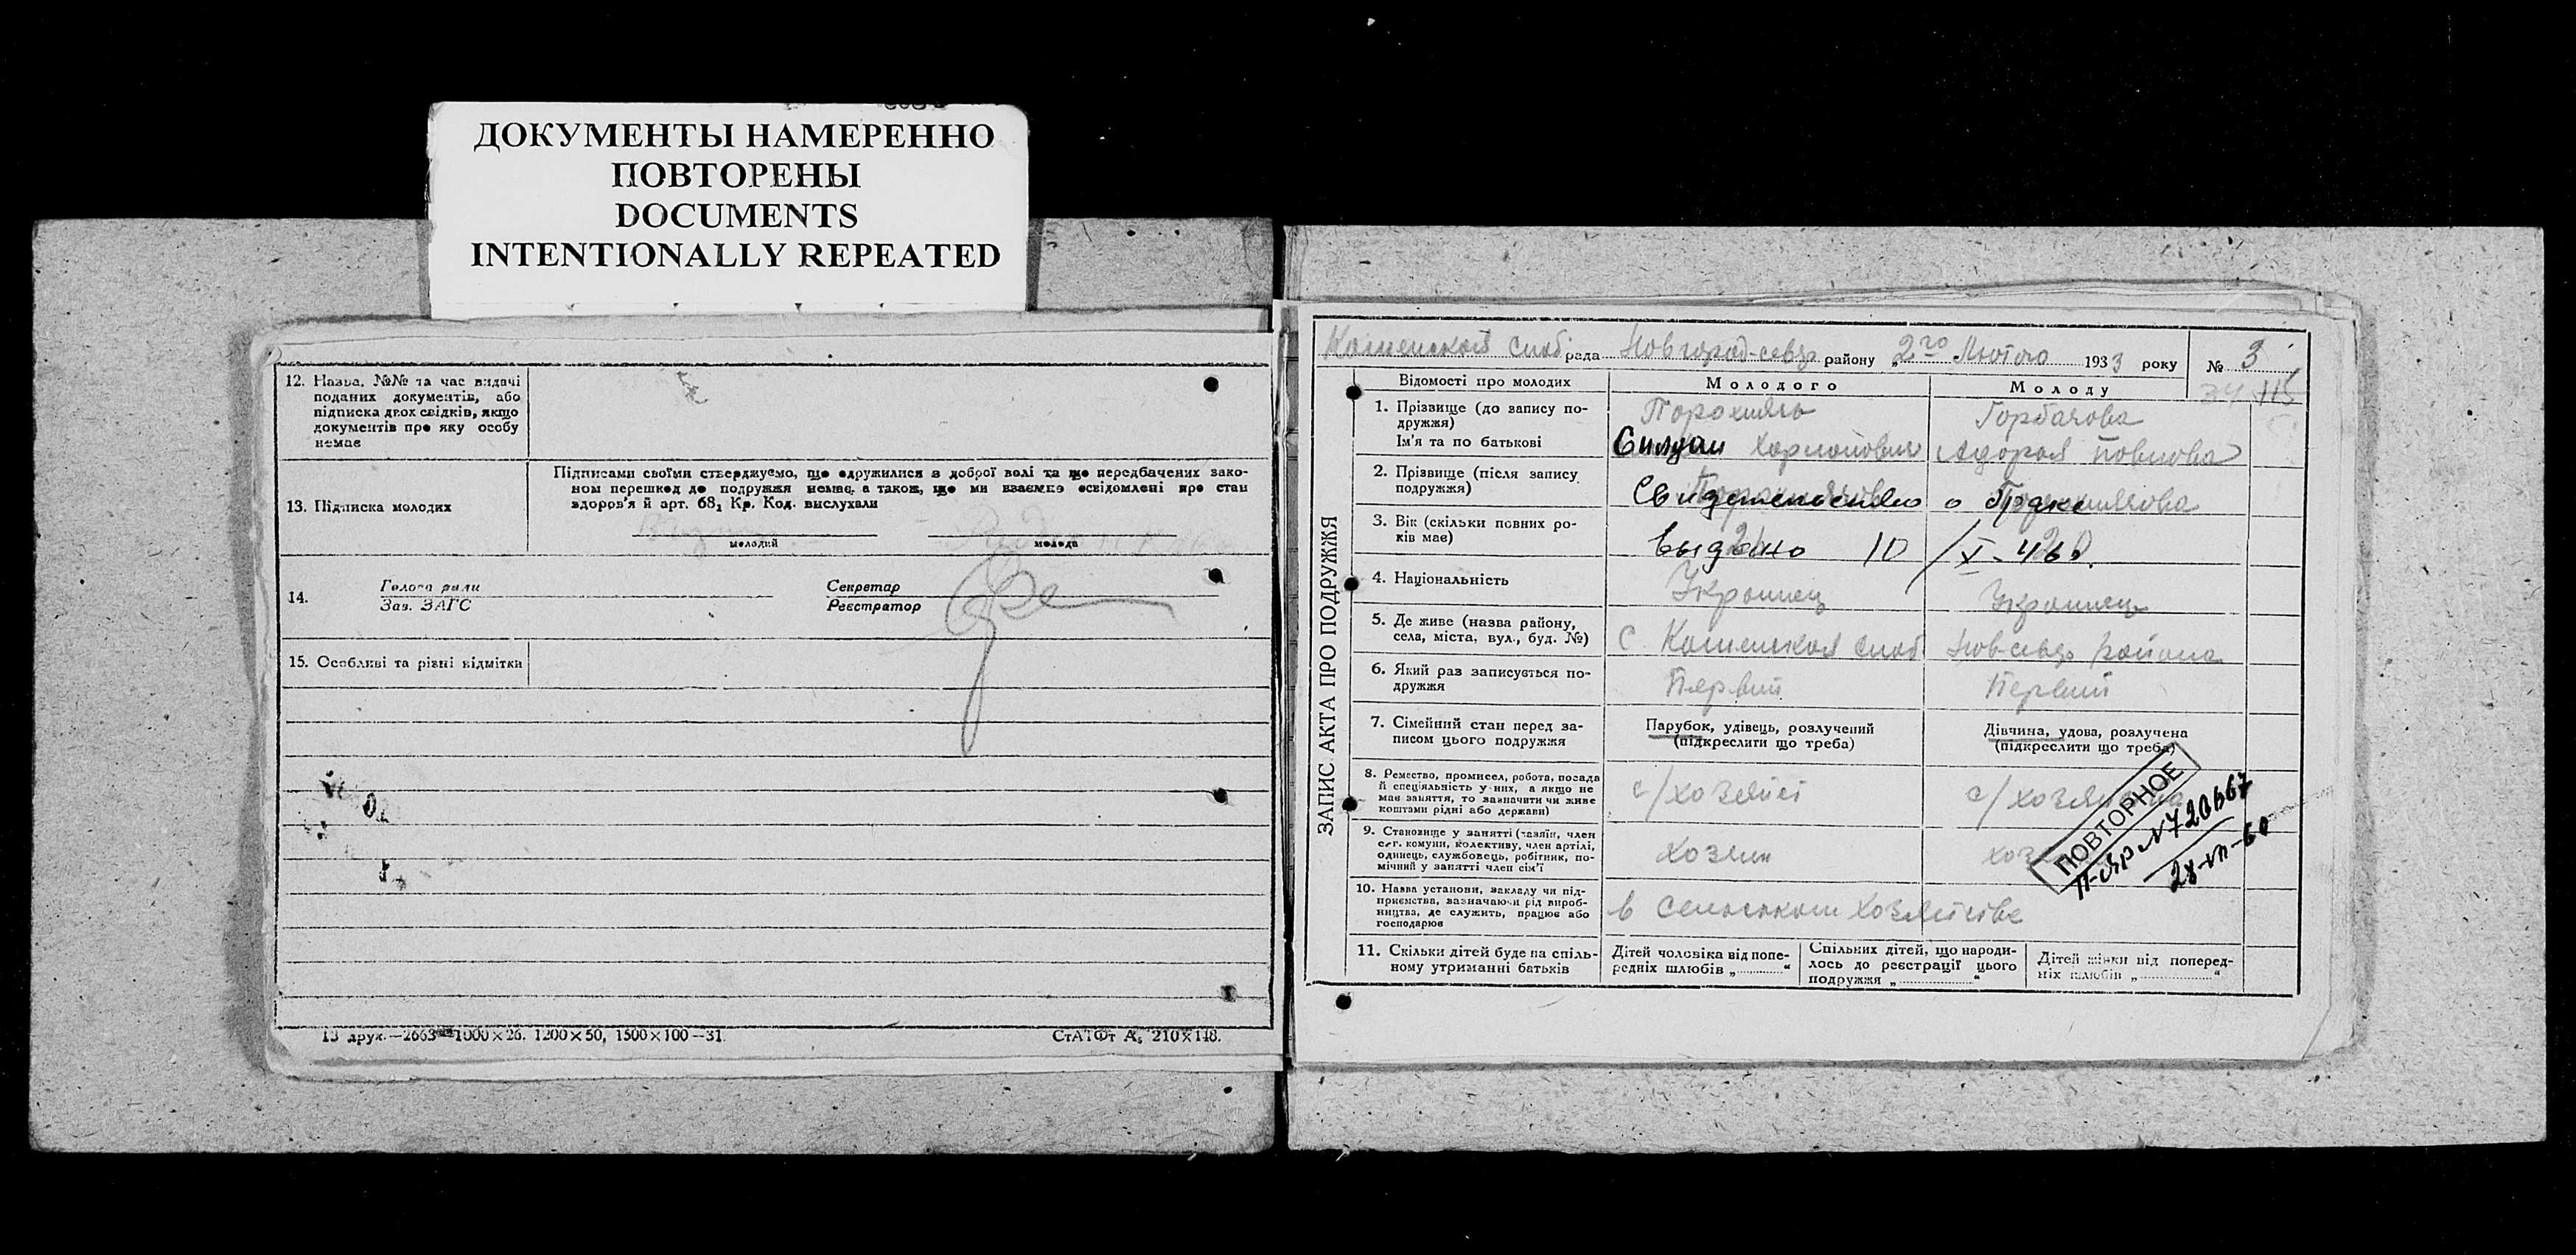 ДОКУМЕНТЫ НАМЕРЕННО
ПОВТОРЕНЫ
DOCUMENTS
INTENTIONALLY REPEATED
12. Назва, №№ та час видачі
поданих документів, або
підписка двох свідків, якщо
документів про яку особу
немає
13. Підписка молодих
Підписами своїми стверджуємо, що одружилися з доброї волі та що передбачених зако-
ном перешкод до подружжя немає, а також, що ми взаємно освідомлені про стан
здоров'я й арт. 68₁ Кр. Код. вислухали
молодий
молода
14.
Голова ради
Зав. ЗАГС
Секретар
Реєстратор
15. Особливі та різні відмітки
13 друк.—2663—1000×26. 1200×50, 1500×100—31.
СтАТФт А₅ 210×148.
ЗАПИС АКТА ПРО ПОДРУЖЖЯ
рада Новгород-севр району „2го Лютого 1933 року
№ 3
Відомості про молодих
Молодого
Молоду
1. Прізвище (до запису по-
дружжя)
Ім'я та по батькові
Горбачова
2. Прізвище (після запису
подружжя)
Свидетельство о браке
3. Вік (скільки повних ро-
ків має)
выдано 10/X-46г.
4. Національність
Украинец
Украинец
5. Де живе (назва району,
села, міста, вул., буд. №)
с.
Нов-севр района
6. Який раз записується по-
дружжя
Первий
Первий
7. Сімейний стан перед за-
писом цього подружжя
Парубок, удівець, розлучений
(підкреслити що треба)
Дівчина, удова, розлучена
(підкреслити що треба)
8. Ремество, промисел, робота, посада
й спеціяльність у них, а якщо не
має заняття, то зазначити чи живе
коштами рідні або держави)
с/хозяйст
9. Становище у занятті (хазяїн, член
с.-г. комуни, колективу, член артілі,
одинець, службовець, робітник, по-
мічний у занятті член сім'ї
хозяин
ПОВТОРНОЕ
N720667
28-VII-60
10. Назва установи, закладу чи під-
приємства, зазначаючи рід вироб-
ництва, де служить, працює або
господарює
в сельском хозяйстве
11. Скільки дітей буде на спіль-
ному утриманні батьків
Дітей чоловіка від попе-
редніх шлюбів „..........“
Спільних дітей, що народи-
лось до реєстрації цього
подружжя „..........“
Дітей жінки від поперед-
ніх шлюбів „..........“